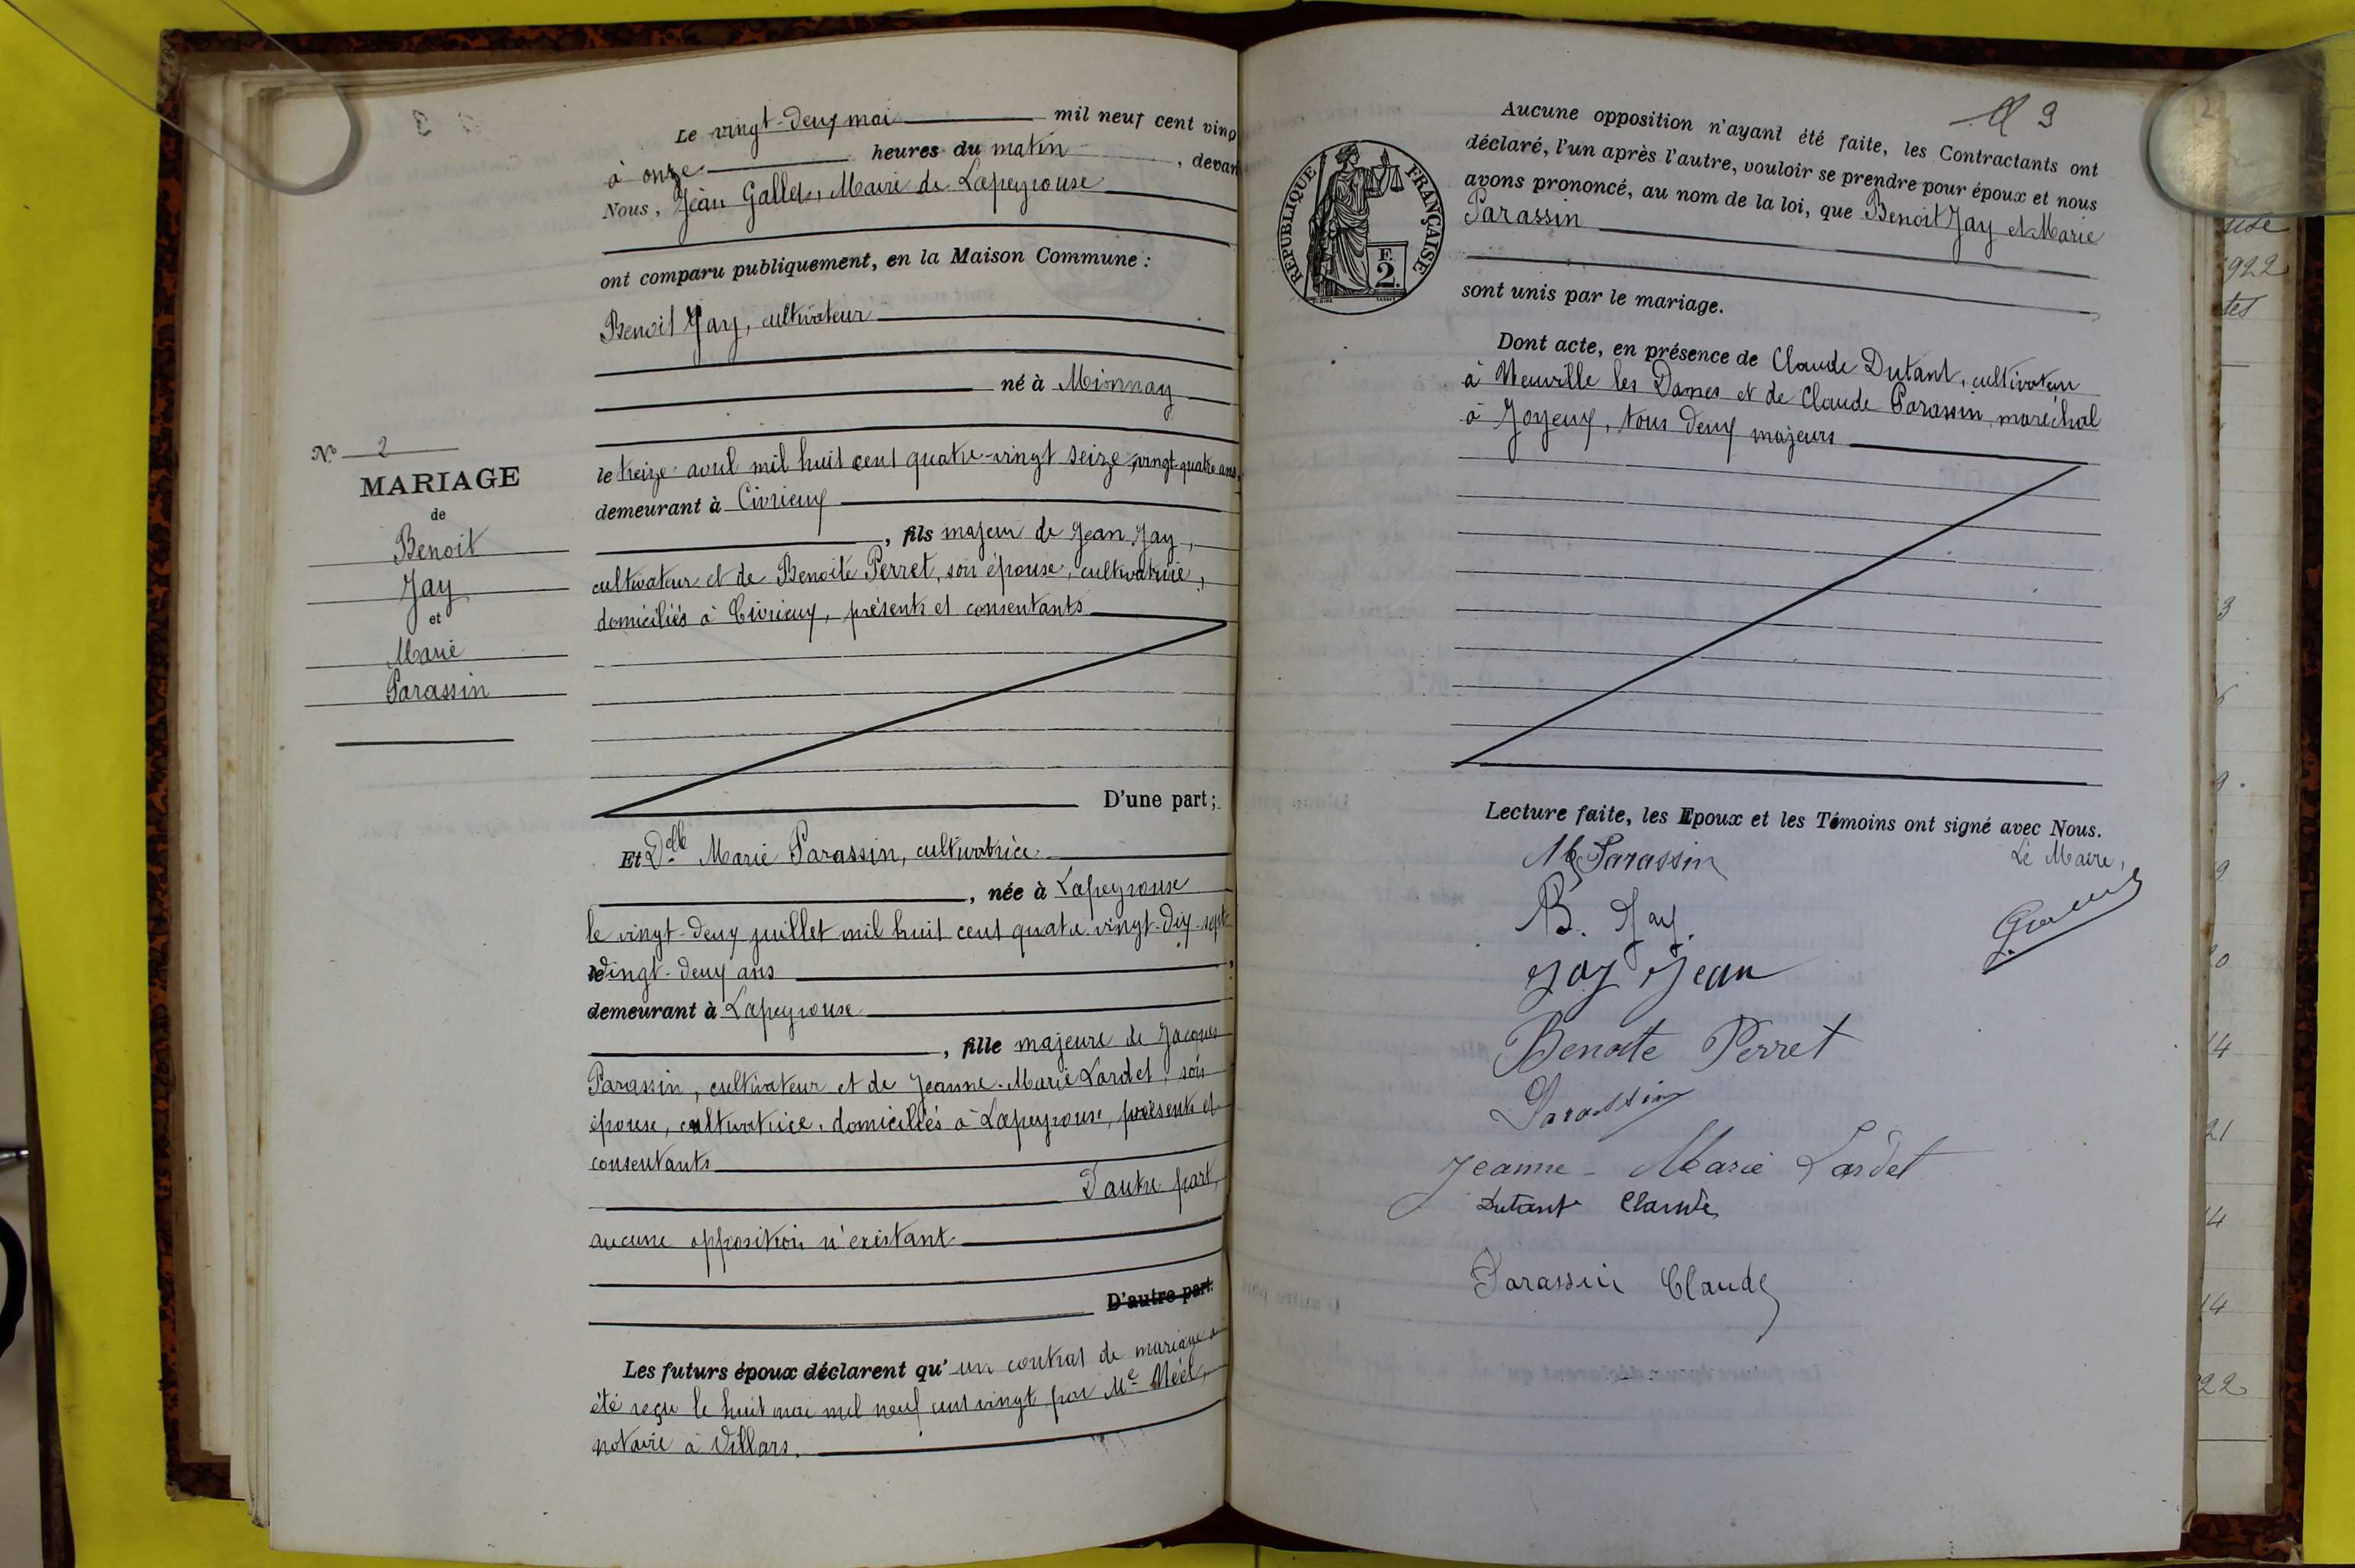 Le vingt-deux mai mil neuf cent ving
à onze heures du matin, devan
Nous, Jean Gallet, Maire de Lapeyrouse
ont comparu publiquement, en la Maison Commune :
Benoit Jay, cultivateur
né à Mionnay
le treize avril mil huit cent quatre-vingt seize, vingt-quatre ans,
demeurant à Civrieux
, fils majeur de Jean Jay,
cultivateur et de Benoite Perret, son épouse, cultivatrice,
domiciliés à Civrieux, présents et consentants
D'une part ;
Et Delle Marie Parassin, cultivatrice
, née à Lapeyrouse
le vingt-deux juillet mil huit cent quatre vingt-dix-sept
vingt-deux ans
demeurant à Lapeyrouse
, fille majeure de Jacques
Parassin, cultivateur et de Jeanne-Marie Lardet, son
épouse, cultivatrice, domiciliés à Lapeyrouse, présents et
consentants
D'autre part,
aucune opposition n'existant
D'autre part.
Les futurs époux déclarent qu'un contrat de mariage a
été reçu le huit mai mil neuf cent vingt par Me Méel,
notaire à Villars.
No 2
MARIAGE
de
Benoit
Jay
et
Marie
Parassin
3
Aucune opposition n'ayant été faite, les Contractants ont
déclaré, l'un après l'autre, vouloir se prendre pour époux et nous
avons prononcé, au nom de la loi, que Benoit Jay et Marie
Parassin
sont unis par le mariage.
RÉPUBLIQUE FRANÇAISE
F.
2.
Dont acte, en présence de Claude Dutant, cultivateur
à Neuville les Dames et de Claude Parassin, maréchal
à Joyeux, tous deux majeurs
Lecture faite, les Epoux et les Témoins ont signé avec Nous.
M Parassin
Le Maire,
B. Jay.
Jay Jean
Benoite Perret
Parassin
Jeanne-Marie Lardet
Dutant Claude
Parassin Claude
922
tes
3
6
9
9
14
21
14
14
22